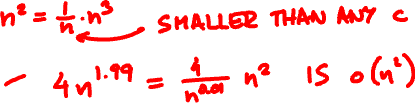 n² = 1/n · n³ SMALLER THAN ANY c
- 4n^1.99 = 4/n^0.01 n² IS o(n²)